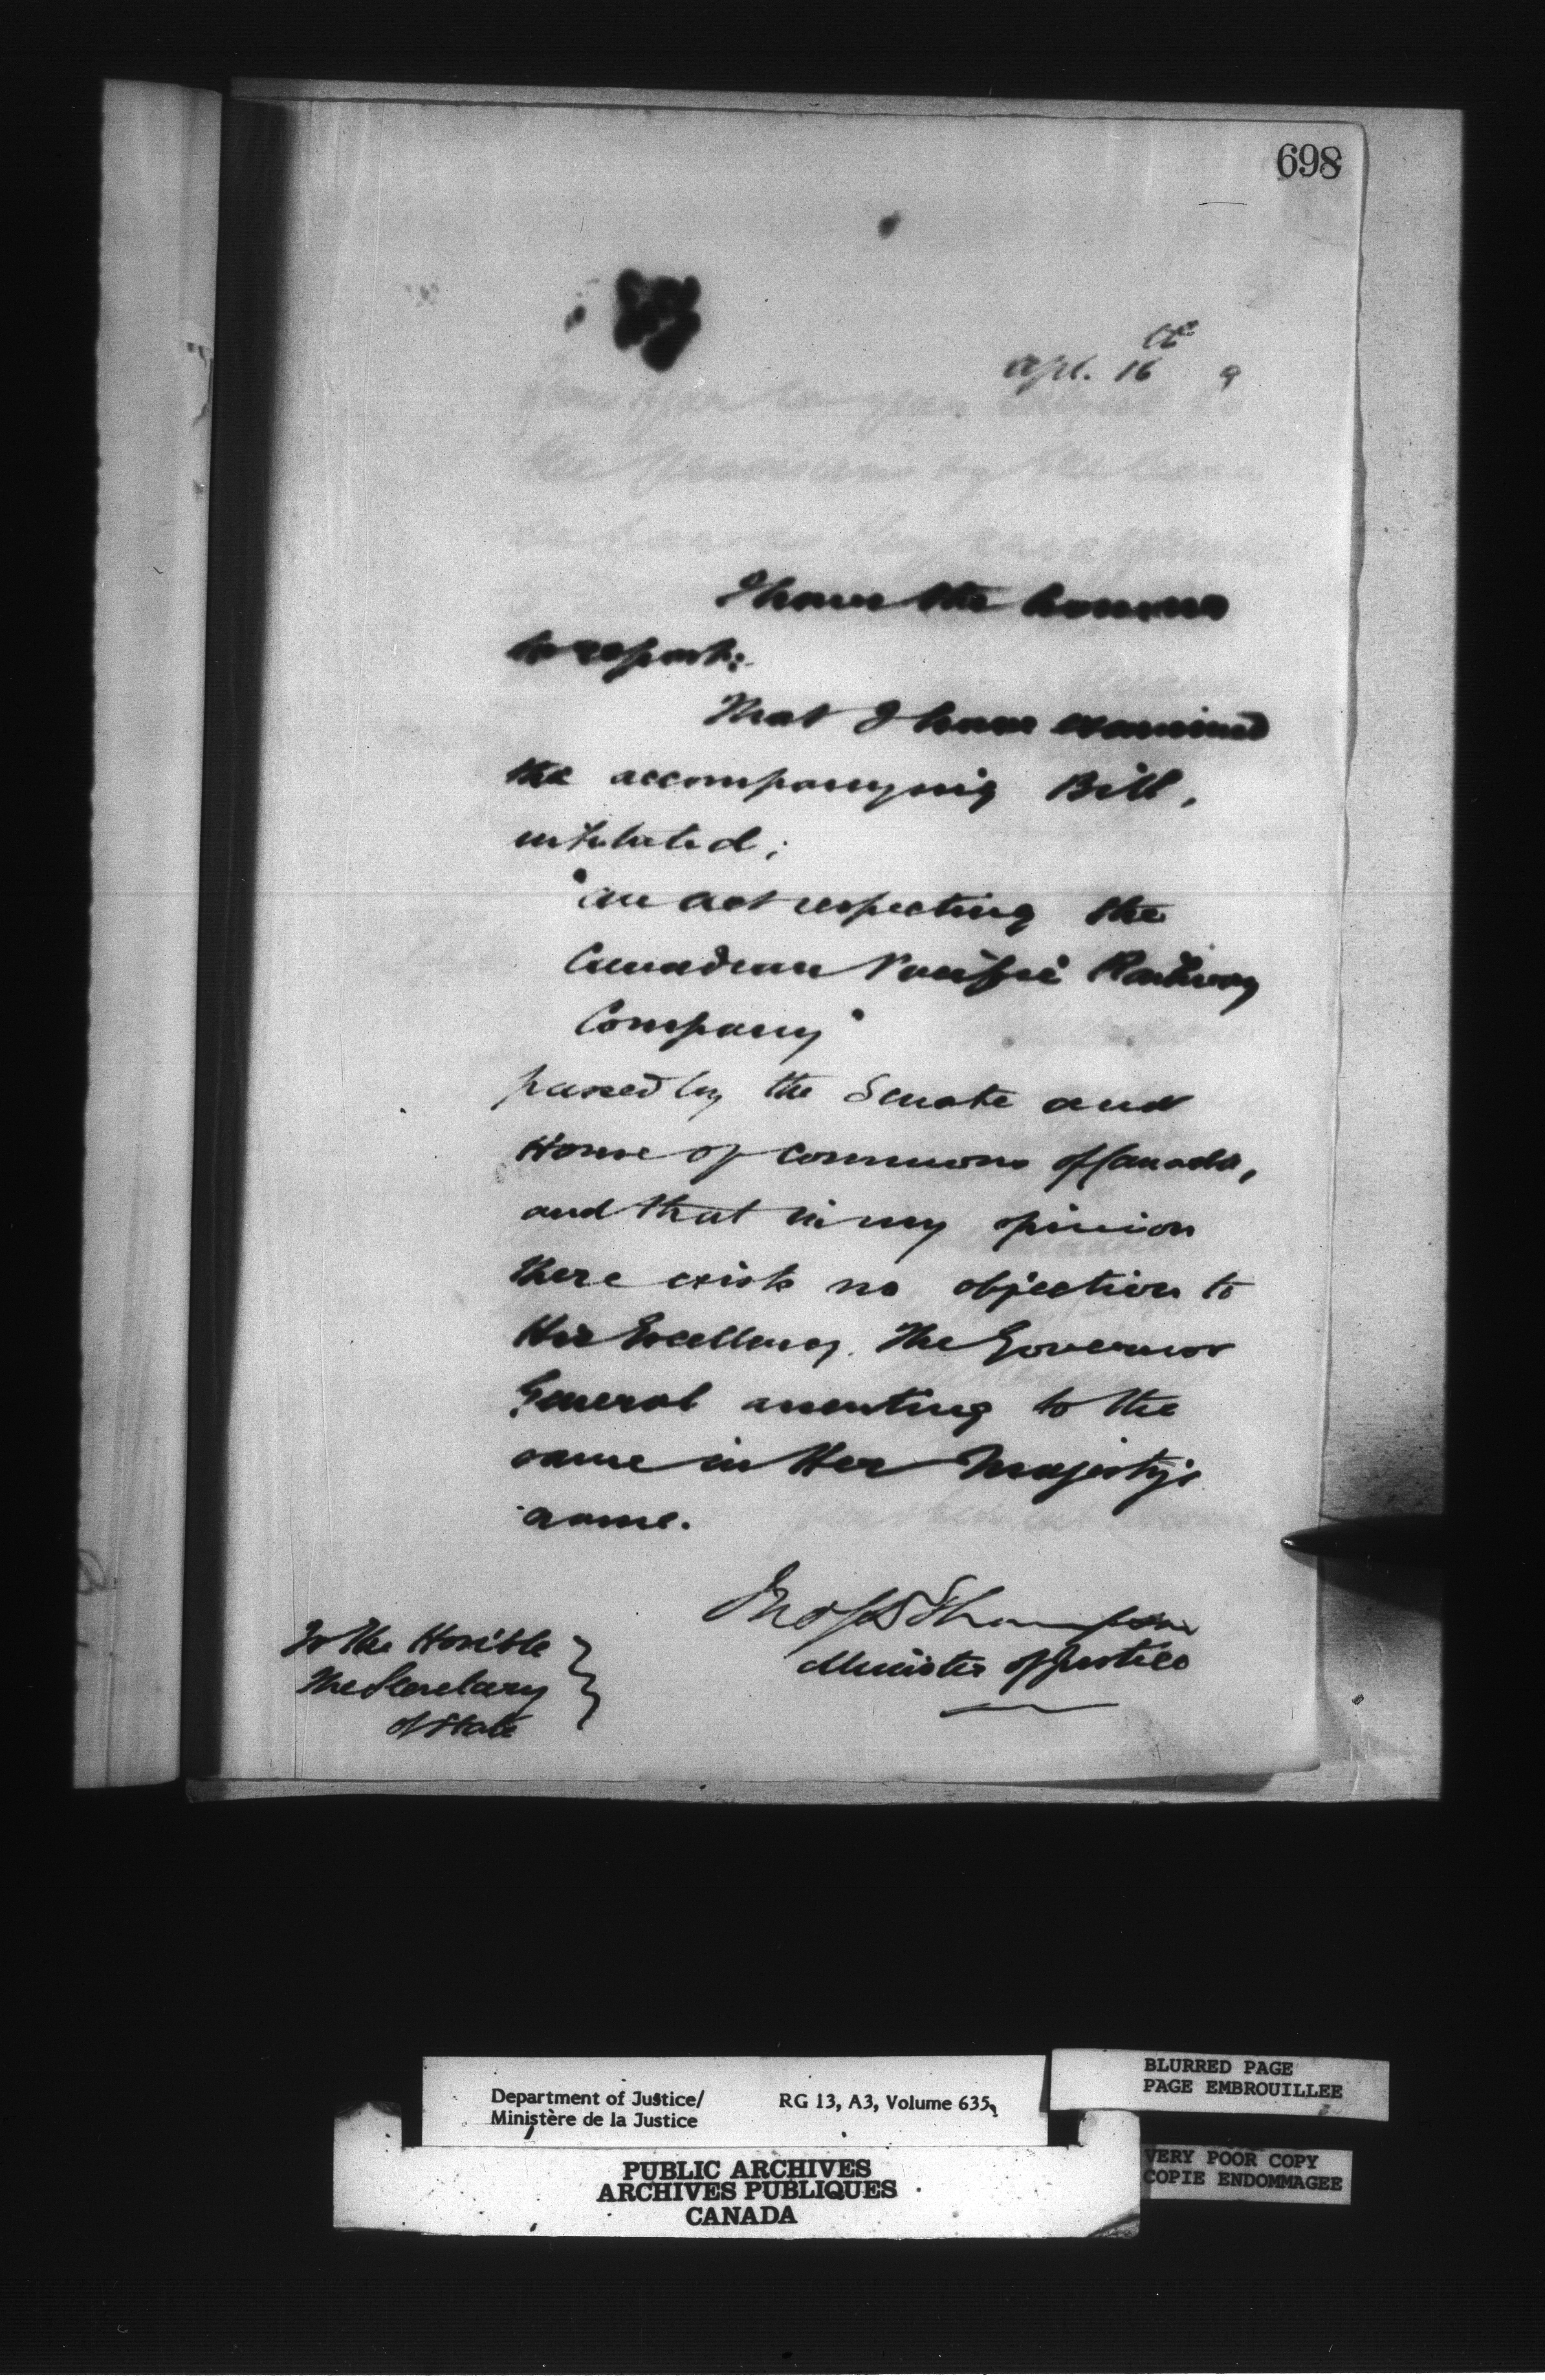 698
Apl. 16th 9
I have the honour
to report:
That I have examined
the accompanying Bill,
intituled;
"An Act respecting the
Canadian Pacific Railway
Company"
passed by the Senate and
House of Commons of Canada,
and that in my opinion
there exists no objection to
His Excellency The Governor
General assenting to the
same in Her Majesty's
name.
Jno S D Thompson
Minister of Justice
To the Honble
The Secretary
of State
Department of Justice/
Ministère de la Justice
RG 13, A3, Volume 635
BLURRED PAGE
PAGE EMBROUILLEE
VERY POOR COPY
COPIE ENDOMMAGEE
PUBLIC ARCHIVES
ARCHIVES PUBLIQUES
CANADA